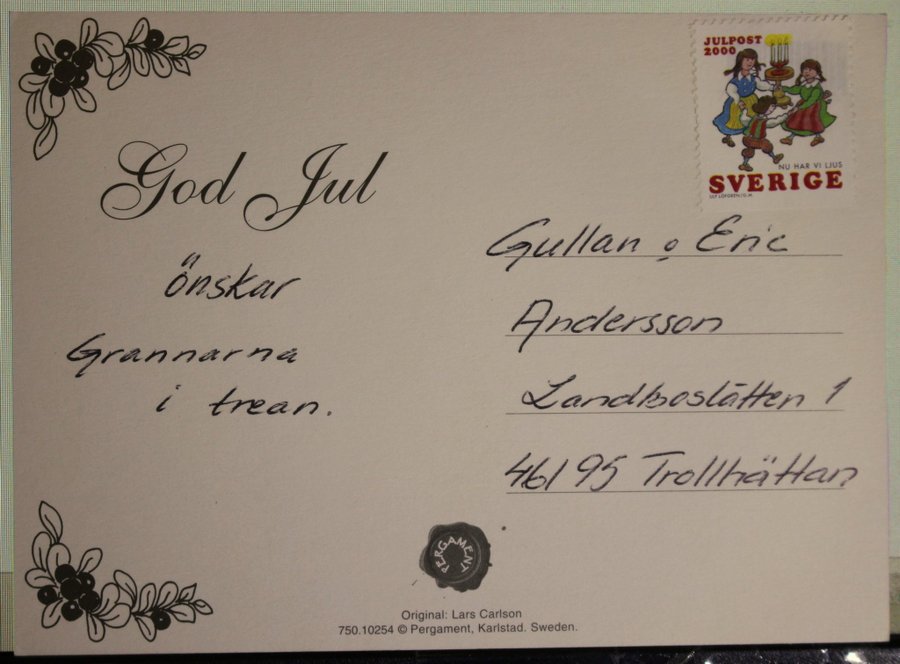 JULPOST
2000
NU HAR VI LJUS
SVERIGE
God Jul
önskar
Grannarna
i trean.
Gullan o Eric
Andersson
Landboslätten 1
461 95 Trollhättan
PERGAMENT
Original: Lars Carlson
750.10254 © Pergament, Karlstad. Sweden.